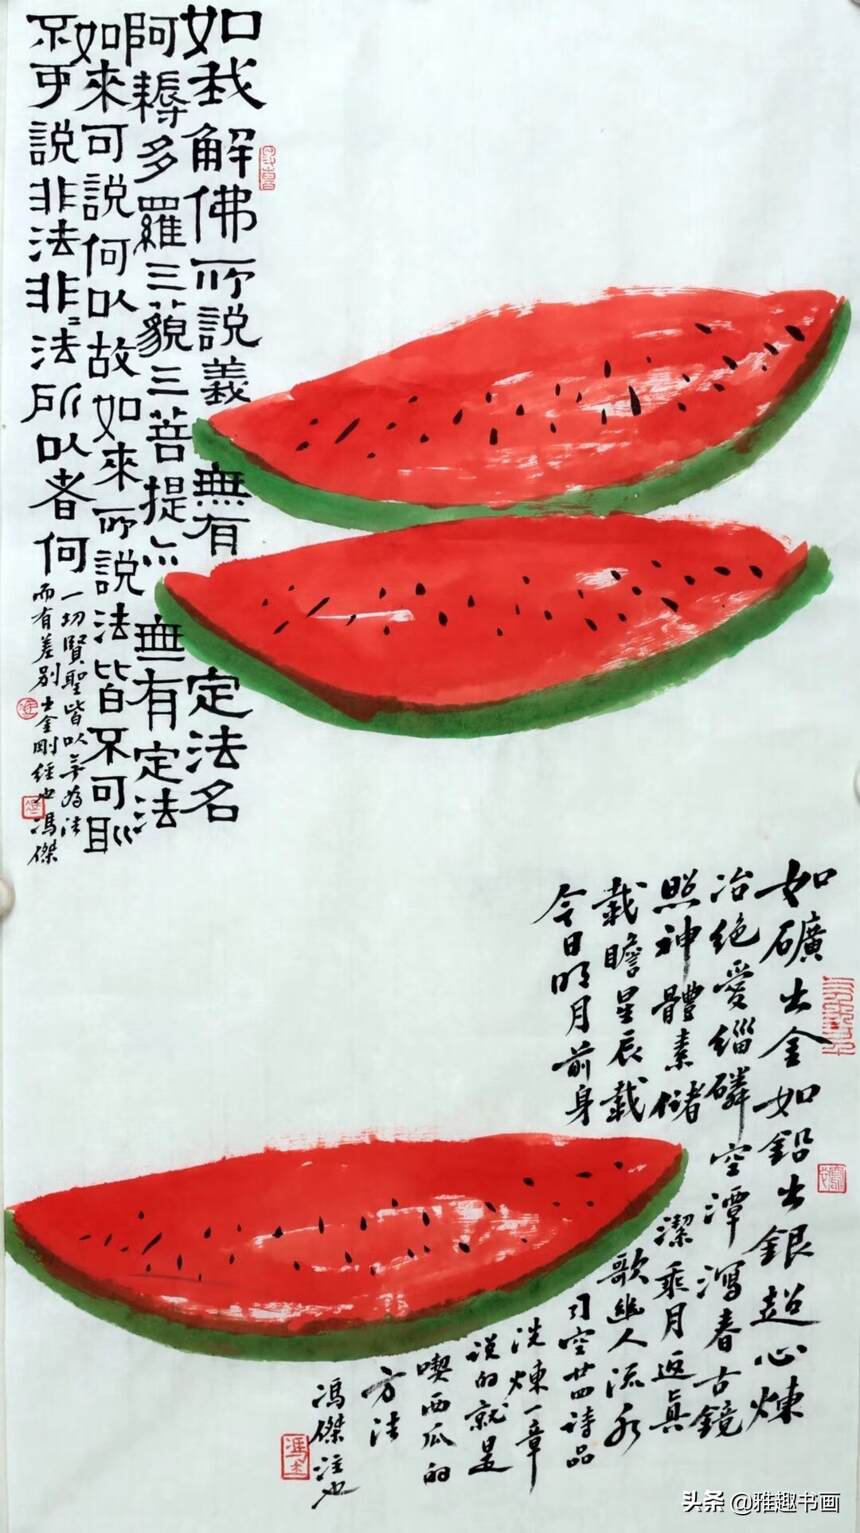 如我解佛所說義無有定法名
阿耨多羅三藐三菩提亦無有定法
如來可說何以故如來所說法皆不可取
不可說非法非〻法所以者何
一切賢聖皆以無為法
而有差別上金剛經也馮傑
如礦出金如鉛出銀超心煉
冶絕愛緇磷空潭瀉春古鏡
照神體素儲潔乘月返真
載瞻星辰載歌幽人流水
今日明月前身
司空廿四詩品
洗煉一章
说的就是
喫西瓜的
方法
馮傑注也
头条 @雅趣书画